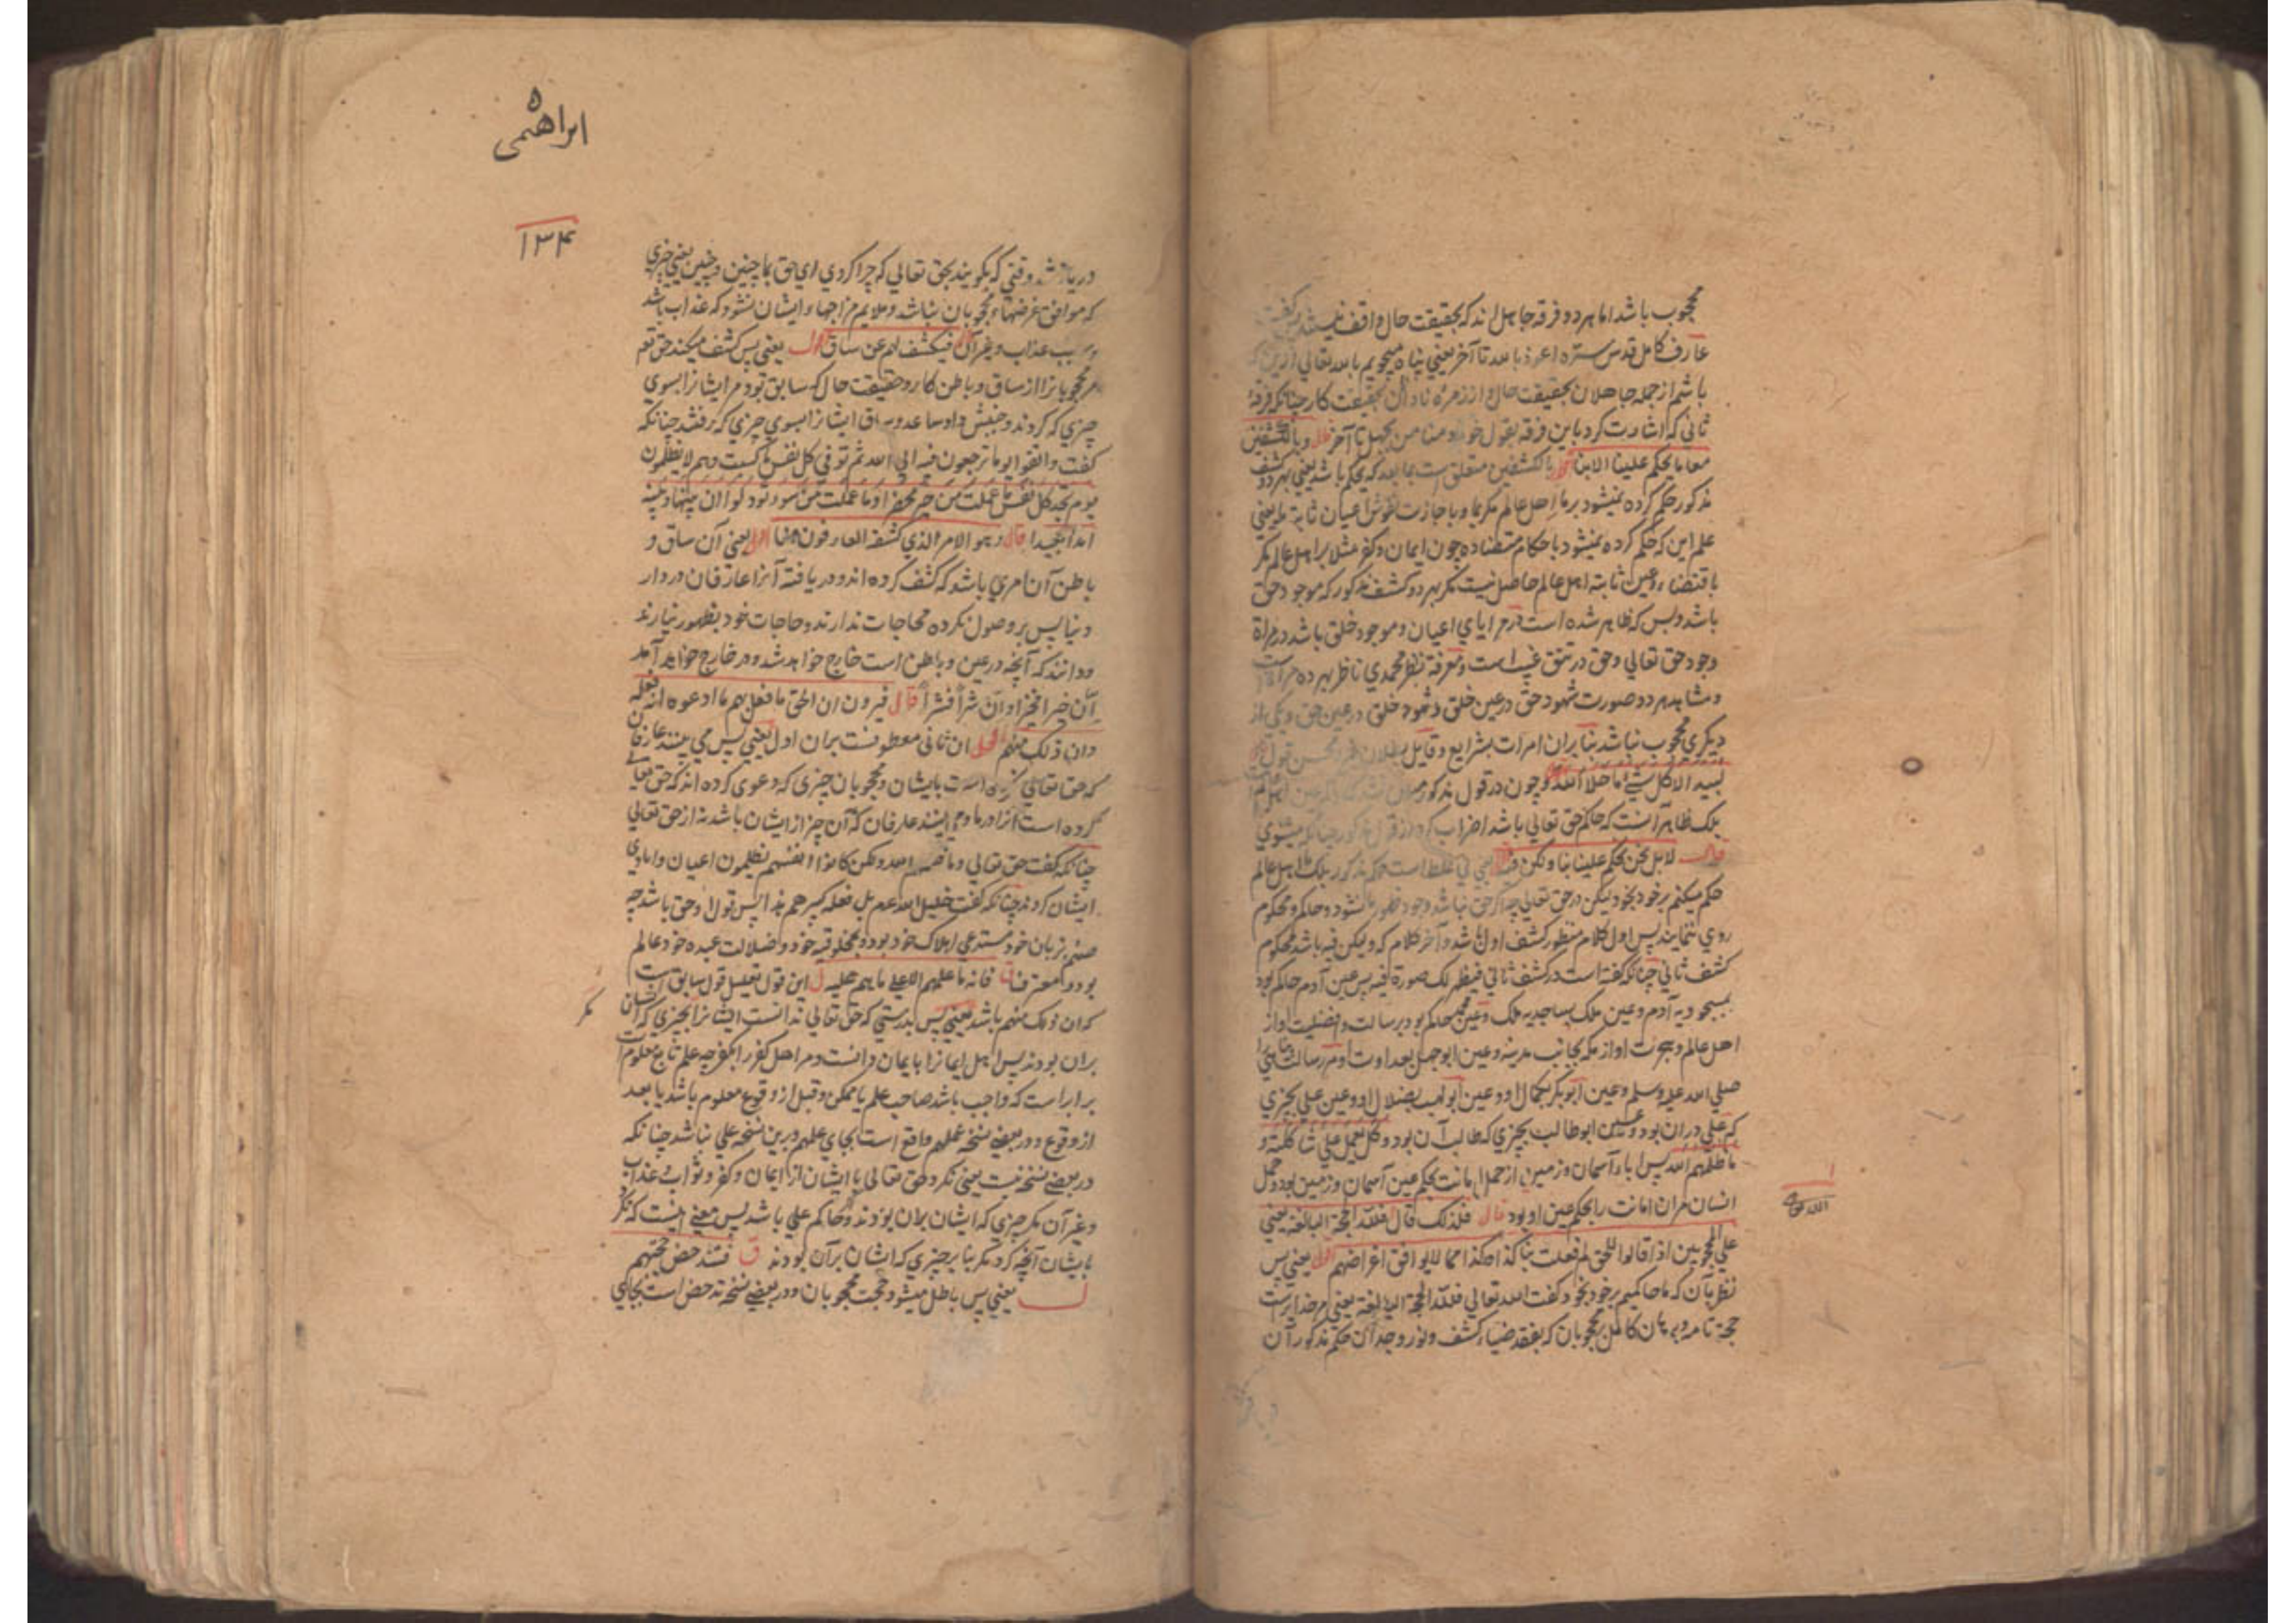 محجوب باشد اما هر دو فرقه جاهل اند که بحقیقت حال واقف نیستند گفت
عارف کامل قدس سره اعوذ بالله تا آخر یعنی پناه میجویم بالله تعالی ازین که
باشم از جمله جاهلان بحقیقت حال و از زمرهٔ نادان بحقیقت کار چنانکه فرقهٔ
ثانی که اشارت کرد باین فرقه بقول خود و منا من یجهل تا آخر قال وبالکشفین
معا ما یحکم علینا الا بنا اقول بالکشفین متعلق است بما بعد که یحکم باشد یعنی بهر دو کشف
مذکور حکم کرده نمیشود بر ما اهل عالم مگر بما و باجازت نقوش اعیان ثابته یعنی
علم این که حکم کرده نمیشود باحکام متضاده چون ایمان و کفر مثلا بر اهل عالم مگر
باقتضاء عین ثابته اهل عالم حاصل نیست مگر بهر دو کشف مذکور که موجود حق
باشد و بس که ظاهر شده است در مرایای اعیان و موجود خلق باشد در مرآة
وجود حق تعالی و حق در تتق غیب است و معرفة بنظر محمدی ناظر بهر ده مرآت
و مشاهد هر دو صورت شهود حق در عین خلق و شهود خلق در عین حق و یکی از
دیگری محجوب نباشد بنابران امرات بشرایع و قایل
لبید الا کل شیء ما خلا الله و چون در قول مذکور
بلک ظاهر آنست که حاکم حق تعالی باشد اضراب کرد از قول مذکور چنانکه میشنوی
قال لا بل نحن نحکم علینا بنا ولکن فیه یعنی نی غلط است حکم مذکور بلک ما اهل عالم
حکم میکنم بر خود بخود لیکن در حق تعالی چه اگر حق نباشد وجود ظهور نشود و حاکم و محکوم
روی ننمایند پس اول کلام منظور کشف اول باشد و آخر کلام که ولیکن فیه باشد محکوم
کشف ثانی چنانکه گفته است در کشف ثانی فیظهر لک صورة فیه پس عین آدم حاکم بود
بمسجودیه آدم و عین ملک بساجدیه ملک و عین محمد حاکم بود برسالت و افضلیت او از
اهل عالم و هجرت او از مکه بجانب مدینه و عین ابوجهل بعداوت او مر رسالت پناهی را
صلی الله علیه وسلم و عین ابوبکر بکمال او و عین ابولهب بضلال او و عین علی بچیزی
که علی دران بود و عین ابوطالب بچیزی که طالب آن بود و کل یعمل علی شاکلته و
ما ظلمهم الله پس اباء آسمان و زمین از حمل امانت بحکم عین آسمان و زمین بود و حمل
انسان مران امانت را بحکم عین او بود قال فلذلک قال فلله الحجة البالغة یعنی
علی المحجوبین اذا قالوا للحق لم فعلت بنا کذا و کذا مما لا یوافق اغراضهم اقول یعنی پس
نظر بآن که ما حاکمیم بر خود بخود گفت الله تعالی فلله الحجة البالغة یعنی مر خدایراست
حجة تامه و برهان کامل بر محجوبان که بفقد ضیاء کشف و نور وجدان حکم مذکور آن
ابراهیمی
۱۳۴
در یابند شد وقتی که بگویند بحق تعالی که چرا کردی ای حق بما چنین و چنین یعنی چیزی
که موافق غرضهاء محجوبان نباشد و ملایم مزاجهاء ایشان نشود که عذاب باشد
و سبب عذاب و غیر آن قال فیکشف لهم عن ساق اقول یعنی پس کشف میکند حق تعم
مر محجوبانرا از ساق و باطن کار و حقیقت حال که سابق بود مر ایشانرا بسوی
چیزی که کردند و جنبش داد ساعد و ساق ایشانرا بسوی چیزی که رفتند چنانکه
گفت واتقوا یوما ترجعون فیه الی الله ثم توفی کل نفس ما کسبت وهم لا یظلمون
یوم تجد کل نفس ما عملت من خیر محضرا وما عملت من سوء تود لو ان بینها وبینه
امدا بعیدا قال وهو الامر الذی کشفه العارفون هنا اقول یعنی آن ساق و
باطن آن امری باشد که کشف کرده اند و دریافته آنرا عارفان در دار
دنیا پس بر وصول نکرده محاجات ندارند و حاجات خود بظهور نیارند
و دانند که آنچه در عین و باطن است خارج خواهد شد و در خارج خواهد آمد
ان خیرا فخیرا و ان شرا فشرا قال فیرون ان الحق ما فعل بهم ما ادعوه انه فعله
وان ذلک منهم اقول ان ثانی معطوفست بران اول یعنی پس می بینند عارفان
که حق تعالی نکرده است بایشان و محجوبان چیزی که دعوی کرده اند که حق تعالی
کرده است آنرا در ما و می بینند عارفان که آن چیز از ایشان باشد نه از حق تعالی
چنانکه گفت حق تعالی وما ظلمهم الله ولکن کانوا انفسهم یظلمون اعیان و ایادی
ایشان کردند چنانکه گفت خلیل الله عم بل فعله کبیرهم هذا پس قول او حق باشد چه
صنم بزبان خود مستدعی اهلاک خود بود و بمخلوقیه خود و ضلالت عبده خود عالم
بود و معترف قال فانه ما علمهم الا علی ما هم علیه ل این قول تعلیل قول سابق است
که ان ذلک منهم باشد یعنی پس بدرستی که حق تعالی ندانست ایشانرا بچیزی که ایشان
مگر
بران بودند پس اهل ایمانرا بایمان دانست و مر اهل کفر را بکفر چه علم تابع معلوم است
برابر است که واجب باشد صاحب علم یا ممکن و قبل از وقوع معلوم باشد یا بعد
از وقوع و در بعضی نسخه عملهم واقع است بجای علمهم و برین نسخه علی نباشد چنانکه
در بعضی نسخه نیست یعنی نکرد حق تعالی با ایشان از ایمان و کفر و ثواب و عذاب
و غیر آن مگر چیزی که ایشان بران بودند و حاکم علی باشد پس معنی اینست که نکرد
بایشان آنچه کرد مگر بنا بر چیزی که ایشان برآن بودند ق فتندحض حجتهم
ل یعنی پس باطل میشود حجت محجوبان و در بعضی نسخه تدحض است بجای